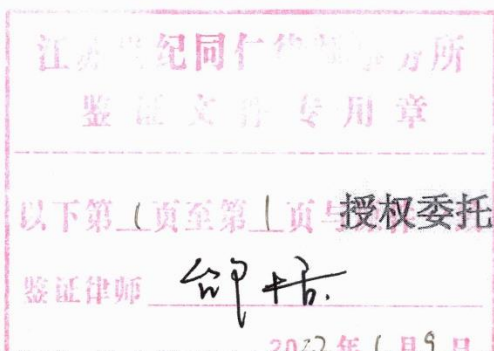 江苏世纪同仁律师事务所
鉴证文件专用章
以下第1页至第1页与 授权委托
鉴证律师
2022年1月9日